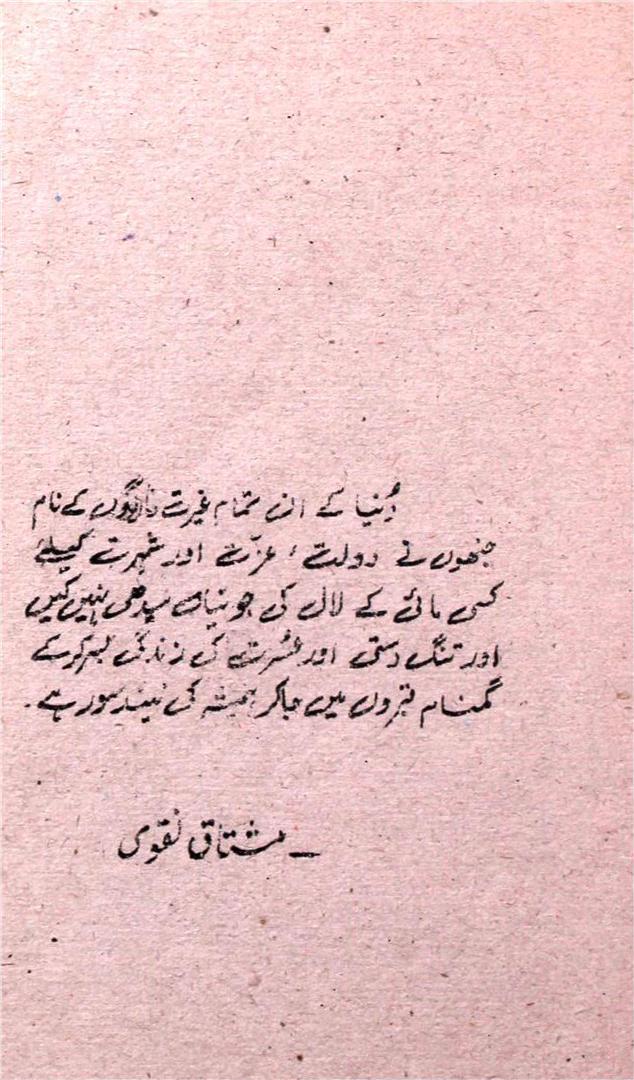 دُنیا کے ان تمام غیرت داروں کے نام
جنھوں نے دولت، عزّت اور شہرت کیلئے
کسی مائی کے لال کی جوتیاں سیدھی نہیں کیں
اور تنگ دستی اور عُسرت کی زندگی بسر کرکے
گمنام قبروں میں جاکر ہمیشہ کی نیند سو رہے۔
— مشتاق نقوی